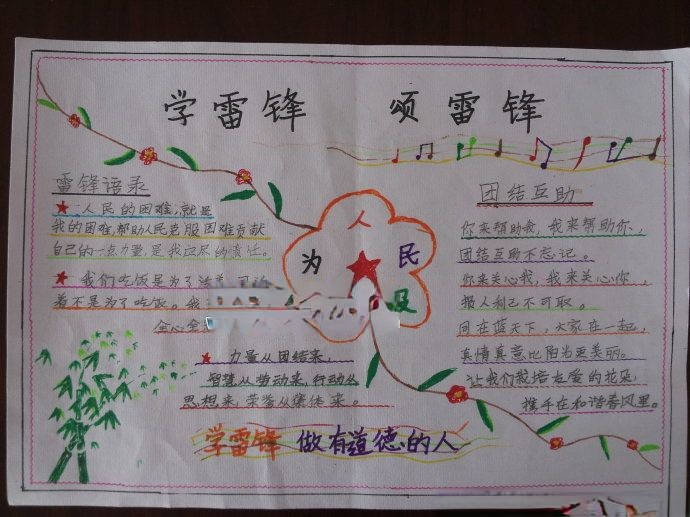 学雷锋 颂雷锋
雷锋语录
人民的困难,就是
我的困难,帮助人民克服困难贡献
自己的一点力量,是我应尽的责任。
我们吃饭是为了活着,可
着不是为了吃饭。我
全心全
力量从团结来,
智慧从劳动来,行动从
思想来,荣誉从集体来。
为人民服
团结互助
你来帮助我,我来帮助你,
团结互助不忘记。
你来关心我,我来关心你,
损人利己不可取。
同在蓝天下,大家在一起,
真情真意比阳光更美丽。
让我们栽培友爱的花朵,
携手在和谐春风里。
学雷锋 做有道德的人